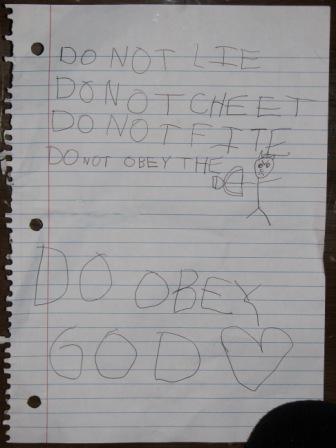 DO NOT LIE
DO NOT CHEET
DO NOT FITE
DO NOT OBEY THE
DO OBEY
GOD